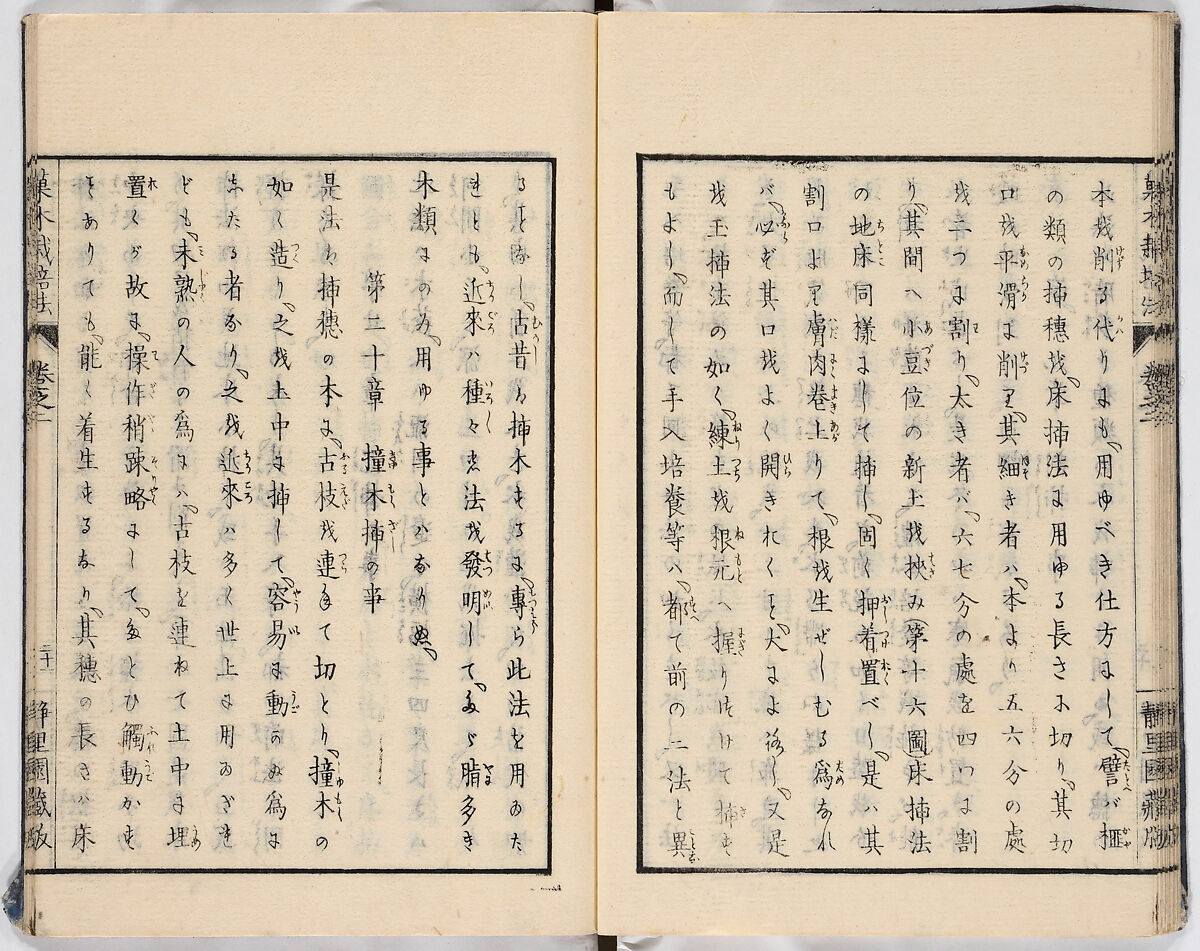 本を削る代りにも、用ゆべき仕方にして、譬バ榧
の類の挿穂を、床挿法に用ゆる長さに切り、其切
口を平滑に削り、其細き者ハ、本より五六分の處
を二つに割り、太き者バ、六七分の處を四つに割
り、其間へ小豆位の新土を挾み、(第十六圖)床挿法
の地床同樣にして挿し、固く押着置べし、是ハ其
割口より膚肉卷上りて、根を生ぜしむる爲なれ
バ、必ず其口をよく開きれくを、大によろし、又是
を玉挿法の如く、練土を根元へ握りつけて挿す
もよし、而して手入培養等ハ、都て前の二法と異
るとなし、古昔ハ挿木するに、專ら此法を用ゐた
れども、近來ハ種々出法を發明して、多く脂多き
木類にのみ、用ゆる事とハなりぬ、
第二十章 撞木挿の事
是法ハ挿穂の本に、古枝を連ねて切とり、撞木の
如く造り、之を土中に挿して、容易に動かぬ爲に
したる者なり、之を近來ハ多く世上に用ゐざれ
ども、未熟の人の爲にハ、古枝を連ねて土中に埋
置くが故に、操作稍踈略にして、たとひ觸動かす
とありても、能く着生するなり、其穗の長さハ床
菓木栽培法 卷之二 二十一 靜里園藏版